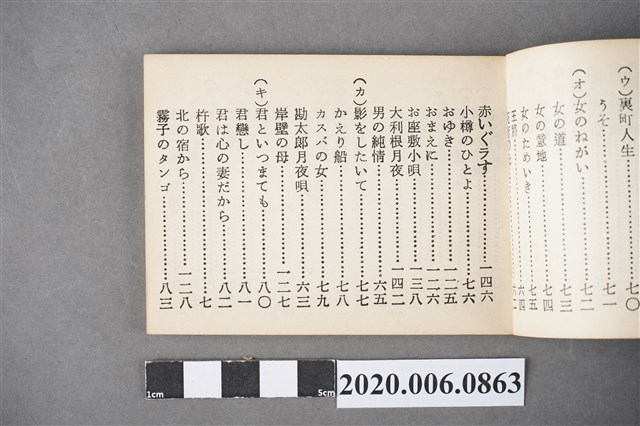 (ウ)裏町人生……………七〇
うそ……………七一
(オ)女のねがい……………七二
女の道……………七三
女の意地……………七四
女のためいき……………七五
赤いぐラす……………一四六
小樽のひとよ……………七六
おゆき……………一二五
おまえに……………一二六
お座敷小唄……………一三八
大利根月夜……………一四二
男の純情……………六五
(カ)影をしたいて……………七七
かえり船……………七八
カスバの女……………七九
勘太郎月夜唄……………六三
岸壁の母……………一二七
(キ)君といつまても……………八〇
君戀し……………八一
君は心の妻だから……………八二
杵歌……………七
北の宿から……………一二八
霧子のタンゴ……………八三
1cm 5cm
2020.006.0863